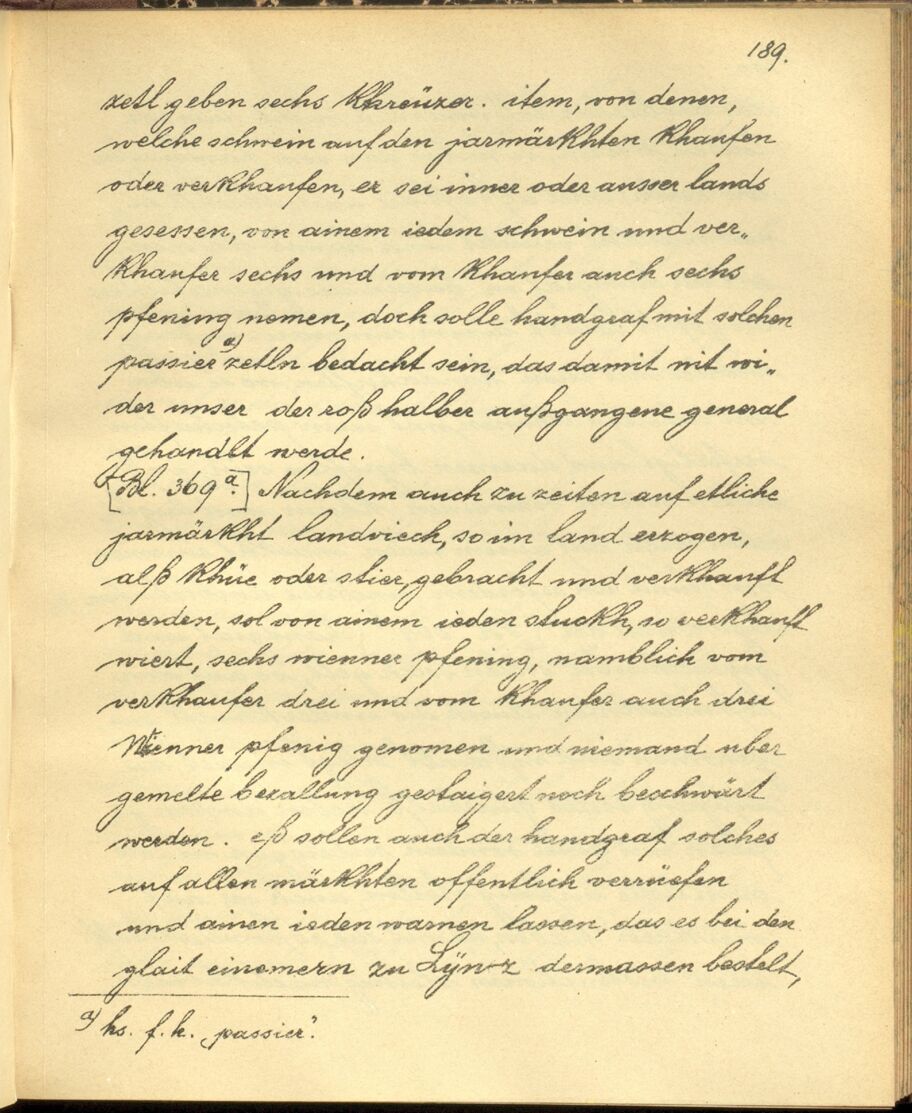 189.
zetl geben sechs Khreüzer. item, von denen,
welche schwein auf den jarmärkhten khaufen
oder verkhaufen, er sei inner oder ausser lands
gesessen, von ainem iedem schwein und ver„
khaufer sechs und vom khaufer auch sechs
pfening nemen, doch solle handgraf mit solchen
passier a) zetln bedacht sein, das damit nit wi„
der unser der roß halber außgangene general
gehandlt werde.
[Bl. 369 a.] Nachdem auch zu zeiten auf etliche
jarmärkht landviech, so im land erzogen,
alß khüe oder stier, gebracht und verkhauft
werden, sol von ainem ieden stuckh, so verkhauft
wiert, sechs wienner pfening, namblich vom
verkhaufer drei und vom khaufer auch drei
Wienner pfenig genomen und niemand uber
gemelte bezallung gestaigert noch beschwärt
werden. eß sollen auch der handgraf solches
auf allen märkhten offentlich verrüefen
und ainen ieden warnen lassen, das es bei den
glait einemern zu Lÿnz dermassen bestelt,
a) hs. f. h. „passier".